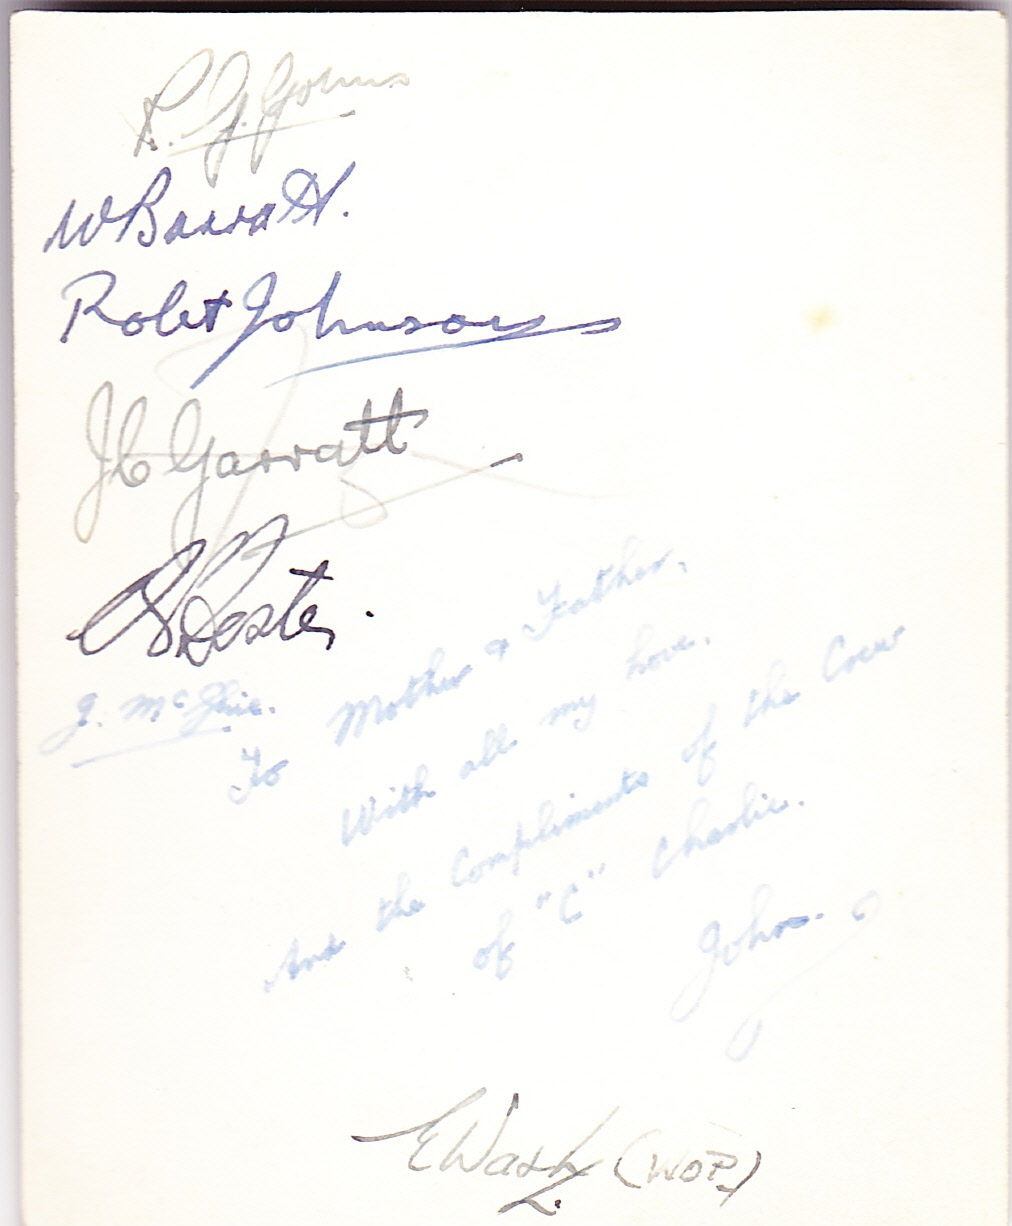 R. G. Johns
W Barratt.
Robert Johnson
J C Garratt
Dexter.
J. McGhie.
To Mother & Father,
With all my love.
And the Compliments of the Crew
of "C" Charlie.
John.
E Wash (WOP)